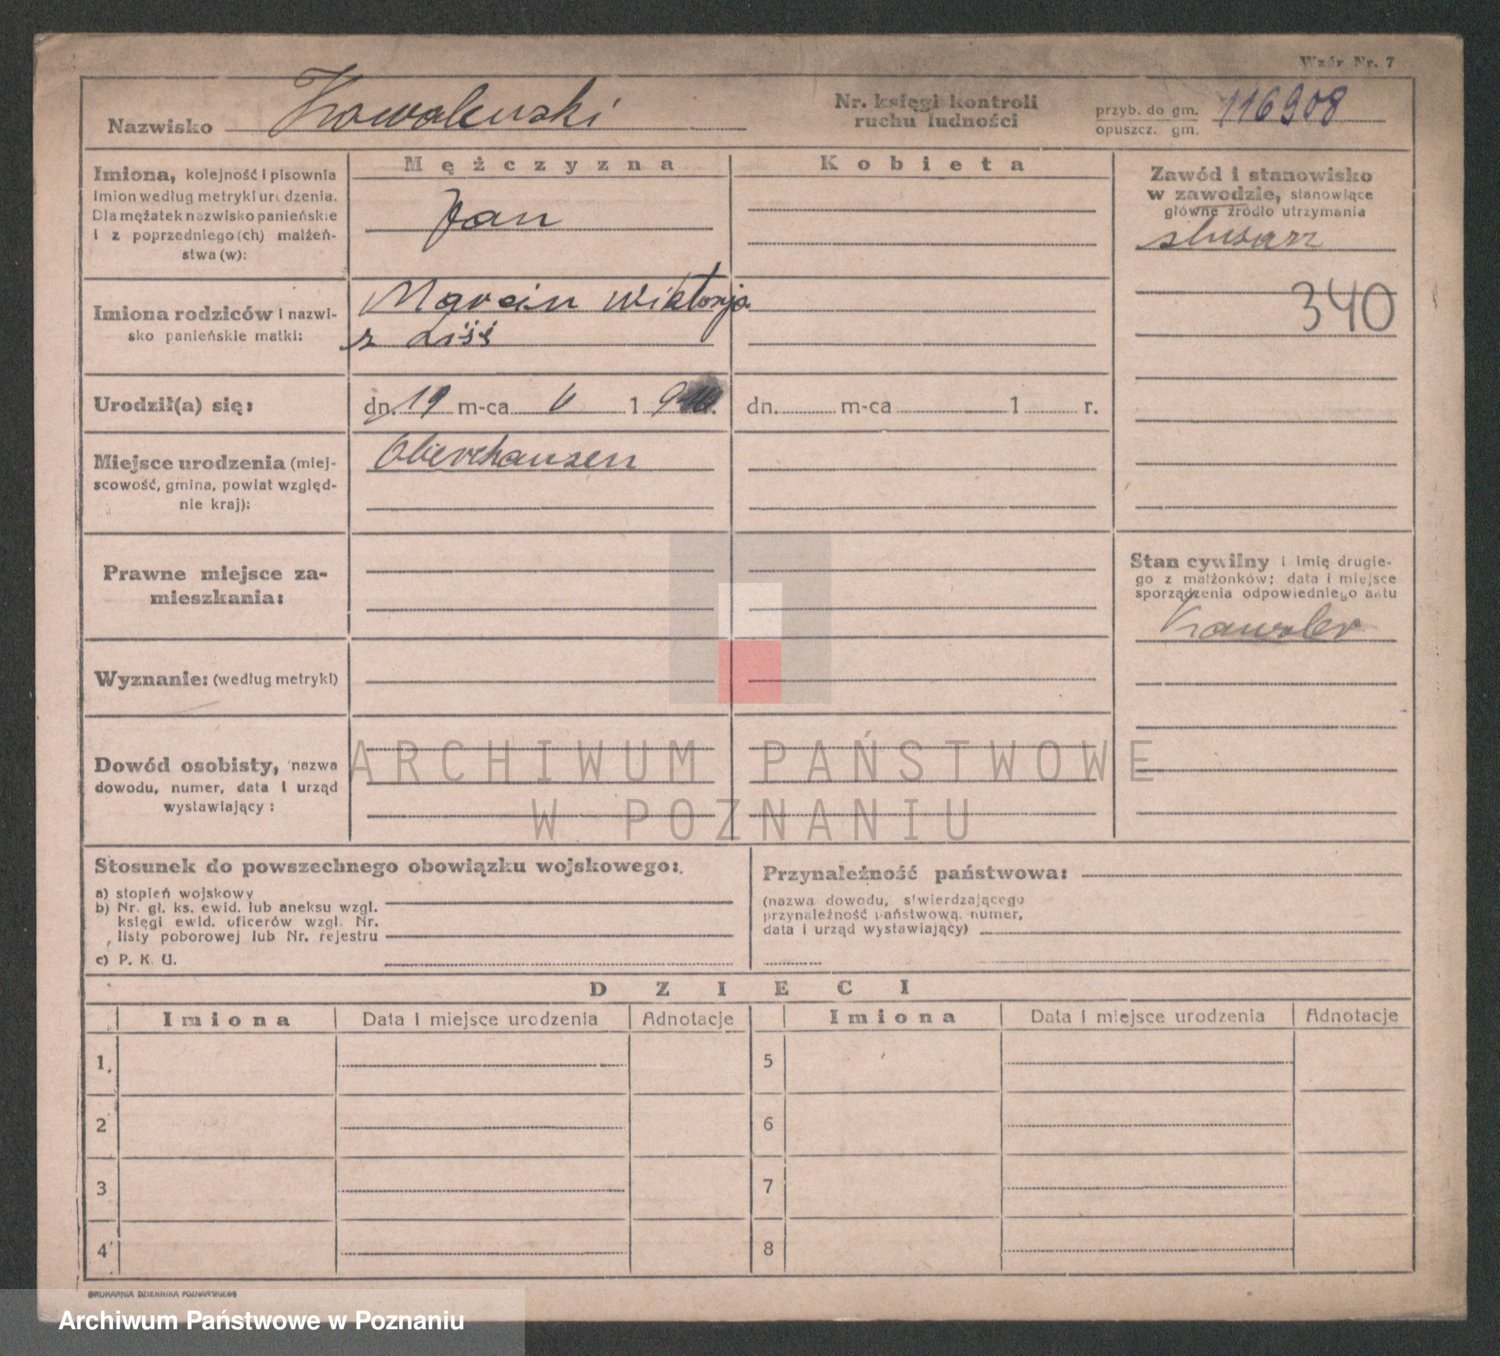 Wzór Nr. 7
Nazwisko Kowalewski
Nr. księgi kontroli
ruchu ludności
przyb. do gm.
opuszcz. gm.
116908
Imiona, kolejność i pisownia
imion według metryki urodzenia.
Dla mężatek nazwisko panieńskie
i z poprzedniego(ch) małżeń-
stwa (w):
Mężczyzna
Jan
Kobieta
Zawód i stanowisko
w zawodzie, stanowiące
główne źródło utrzymania
slusarz
340
Imiona rodziców i nazwi-
sko panieńskie matki:
Marcin Wiktorja
z Liśś
Urodził(a) się:
dn. 19 m-ca 6 1 9
dn. m-ca 1 r.
Miejsce urodzenia (miej-
scowość, gmina, powiat względ-
nie kraj):
Oberchausen
Prawne miejsce za-
mieszkania:
Stan cywilny i imię drugie-
go z małżonków; data i miejsce
sporządzenia odpowiedniego aktu
Kawaler
Wyznanie: (według metryki)
Dowód osobisty, nazwa
dowodu, numer, data i urząd
wystawiający:
ARCHIWUM PAŃSTWOWE
W POZNANIU
Stosunek do powszechnego obowiązku wojskowego:
a) stopień wojskowy
b) Nr. gł. ks. ewid. lub aneksu wzgl.
księgi ewid. oficerów wzgl. Nr.
listy poborowej lub Nr. rejestru
c) P. K. U.
Przynależność państwowa:
(nazwa dowodu, stwierdzającego
przynależność państwową, numer,
data i urząd wystawiający)
DZIECI
Imiona Data i miejsce urodzenia Adnotacje Imiona Data i miejsce urodzenia Adnotacje
1. 5
2 6
3 7
4 8
DRUKARNIA DZIENNIKA POZNAŃSKIEGO
Archiwum Państwowe w Poznaniu